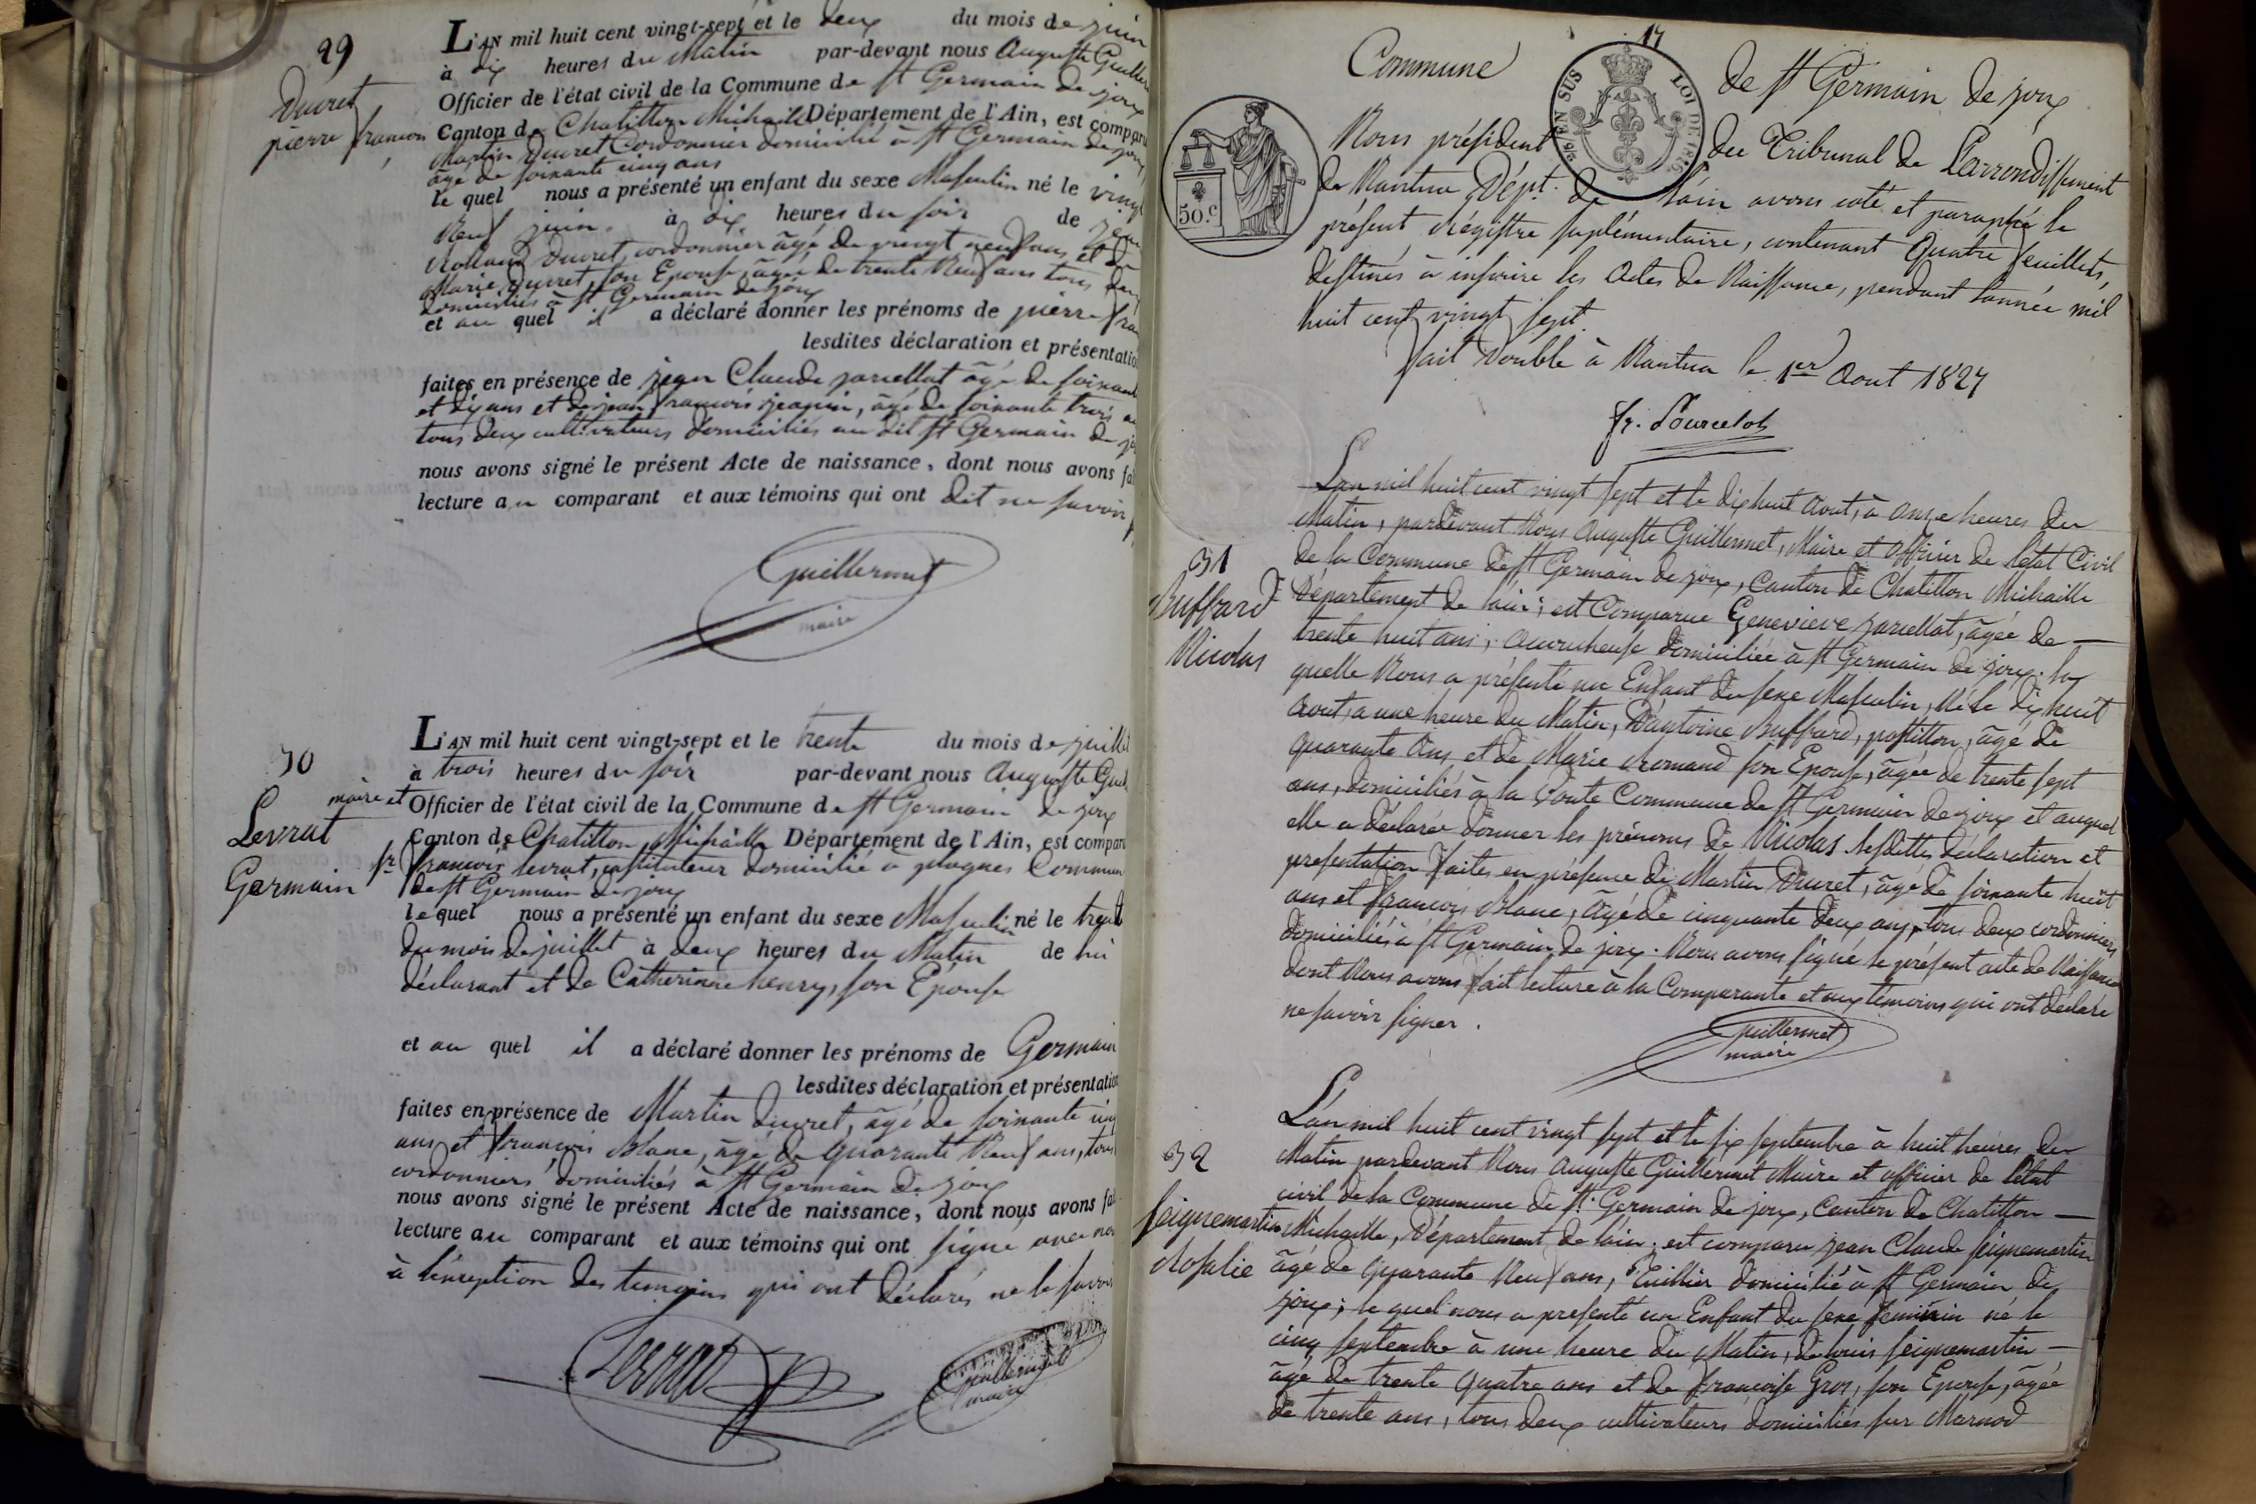 29
Ducret
pierre francois
L'AN mil huit cent vingt-sept et le deux du mois de juin
à dix heures du Matin par-devant nous Auguste Guiller
Officier de l'état civil de la Commune de st Germain de joux
Canton de Chatillon Michaille Département de l'Ain, est compar
Martin Ducret Cordonnier domicilié à st Germain de joux
âgé de soixante cinq ans
le quel nous a présenté un enfant du sexe Masculin né le vingt
Neuf juin à dix heures du soir de
Rolland Ducret, cordonnier âgé de vingt neuf ans et de
Marie Ducret son Epouse, âgée de trente Neuf ans tous deux
domiciliés à st Germain de joux
et au quel il a déclaré donner les prénoms de pierre fran
lesdites déclaration et présentatio
faites en présence de jean Claude jarcellat âgé de soixante
et dix ans et de jean francois jeannin, âgé de soixante trois a
tous deux cultivateurs domiciliés au dit st Germain de jo
nous avons signé le présent Acte de naissance, dont nous avons fai
lecture au comparant et aux témoins qui ont dit ne savoir
Guillermet
maire
30
Levrat
Germain
L'AN mil huit cent vingt-sept et le trente du mois de juillet
à trois heures du soir par-devant nous Auguste Guil
maire et Officier de l'état civil de la Commune de st Germain de joux
Canton de Chatillon Michaille Département de l'Ain, est compar
fr francois levrat, instituteur domicilié à plagnes Commun
de st Germain de joux
lequel nous a présenté un enfant du sexe Masculin né le trente
du mois de juillet à deux heures du Matin de lui
déclarant et de Catherine henry, son Epouse
et au quel il a déclaré donner les prénoms de Germain
lesdites déclaration et présentation
faites en présence de Martin Ducret, âgé de soixante cinq
ans et francois Blanc, âgé de quarante Neuf ans, tous
cordonniers domiciliés à st Germain de joux
nous avons signé le présent Acte de naissance, dont nous avons fai
lecture au comparant et aux témoins qui ont signé avec nou
à l'exception des temoins qui ont déclarés ne le savoir
Levrat
Guillermet
maire
17
Commune de st Germain de joux
2/5 EN SUS LOI DE 1816
50.c
Nous président du Tribunal de L'arrondissement
de Nantua Dépt. de l'ain avons coté et paraphé le
présent régistre suplémentaire, contenant quatre feuillets,
destinés à inscrire les actes de Naissance, pendant l'année mil
huit cent vingt sept.
fait double à Nantua le 1er Aout 1827
31
Buffard
Nicolas
L'an mil huit cent vingt sept et le dix huit Aout, à onze heures du
Matin, pardevant Nous Auguste Guillermet, Maire et officier de l'état Civil
de la Commune de st Germain de joux, Canton de Chatillon Michaille
Département de l'ain, est Comparue Genevieve jarcellat, âgée de —
trente huit ans, accoucheuse domiciliée à st Germain de joux. la
quelle Nous a présenté un Enfant du sexe Masculin, Né le dix huit
Aout, a une heure du Matin, D'antoine Buffard, postillon, âgé de
quarante Ans et de Marie Romand son Epouse, âgée de trente sept
ans, domiciliés à la Voute Commune de st Germain de joux et auquel
elle a déclarée donner les prénoms de Nicolas lesdittes déclaration et
présentation faites en présence de Martin Ducret, âgé de soixante huit
ans et francois Blanc, âgé de cinquante deux ans, tous deux cordonniers
domiciliés à st Germain de joux. Nous avons signé le présent acte de Naissance
dont Nous avons fait lecture à la Comparante et aux témoins qui ont déclaré
ne savoir signer.
Guillermet
maire
32
Seignemartin
Rosalie
L'an mil huit cent vingt sept et le six septembre à huit heures du
Matin pardevant Nous Auguste Guillermet Maire et officier de l'état
civil de la Commune de st Germain de joux, Canton de Chatillon —
Michaille, Département de l'ain, est comparu jean Claude seignemartin
âgé de quarante Neuf ans, Tuillier domicilié à st Germain de
joux; le quel nous a presenté un Enfant du sexe feminin né le
cinq septembre à une heure du Matin, de louis seignemartin —
âgé de trente quatre ans et de francoise Gros, son Epouse, âgée
de trente ans, tous deux cultivateurs domiciliés sur Marnod